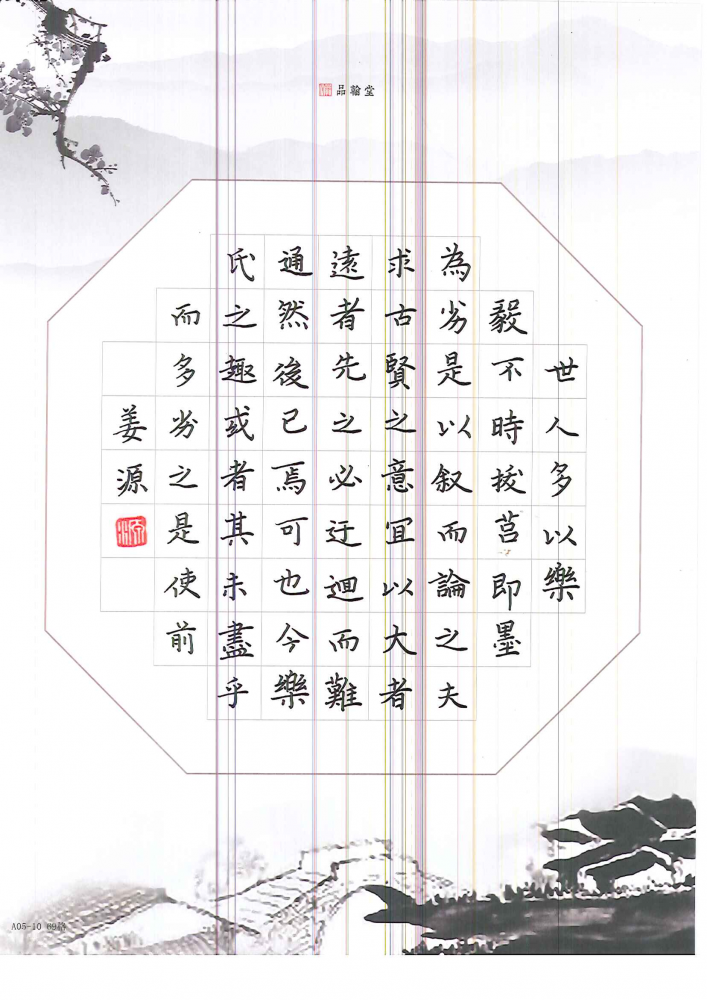 品翰堂
世人多以樂
毅不時拔莒即墨
為劣是以叙而論之夫
求古賢之意宜以大者
遠者先之必迂迴而難
通然後已焉可也今樂
氏之趣或者其未盡乎
而多劣之是使前
姜源
源
A05-10 69格